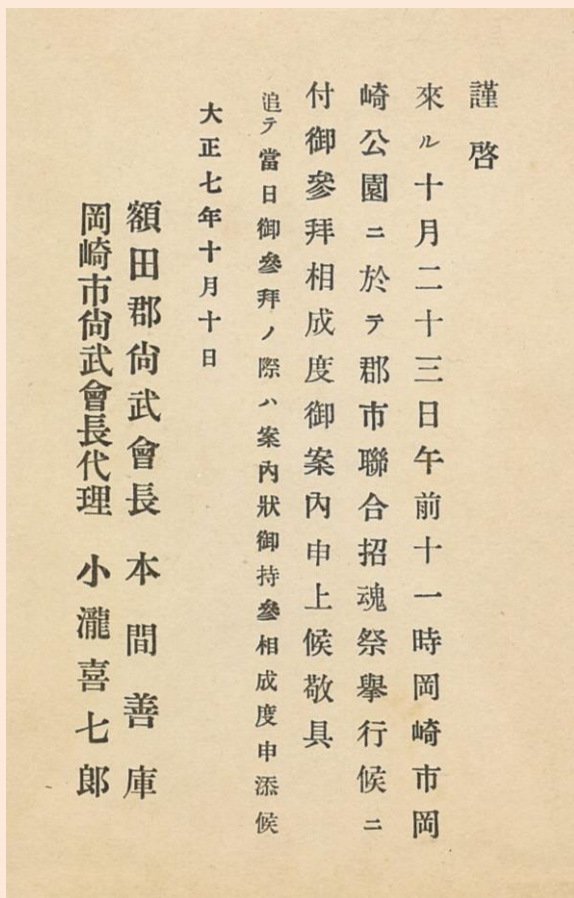 謹啓
來ル十月二十三日午前十一時岡崎市岡
崎公園ニ於テ郡市聯合招魂祭擧行候ニ
付御參拜相成度御案內申上候敬具
追テ當日御參拜ノ際ハ案內狀御持參相成度申添候
大正七年十月十日
額田郡尙武會長 本間善庫
岡崎市尙武會長代理 小瀧喜七郎